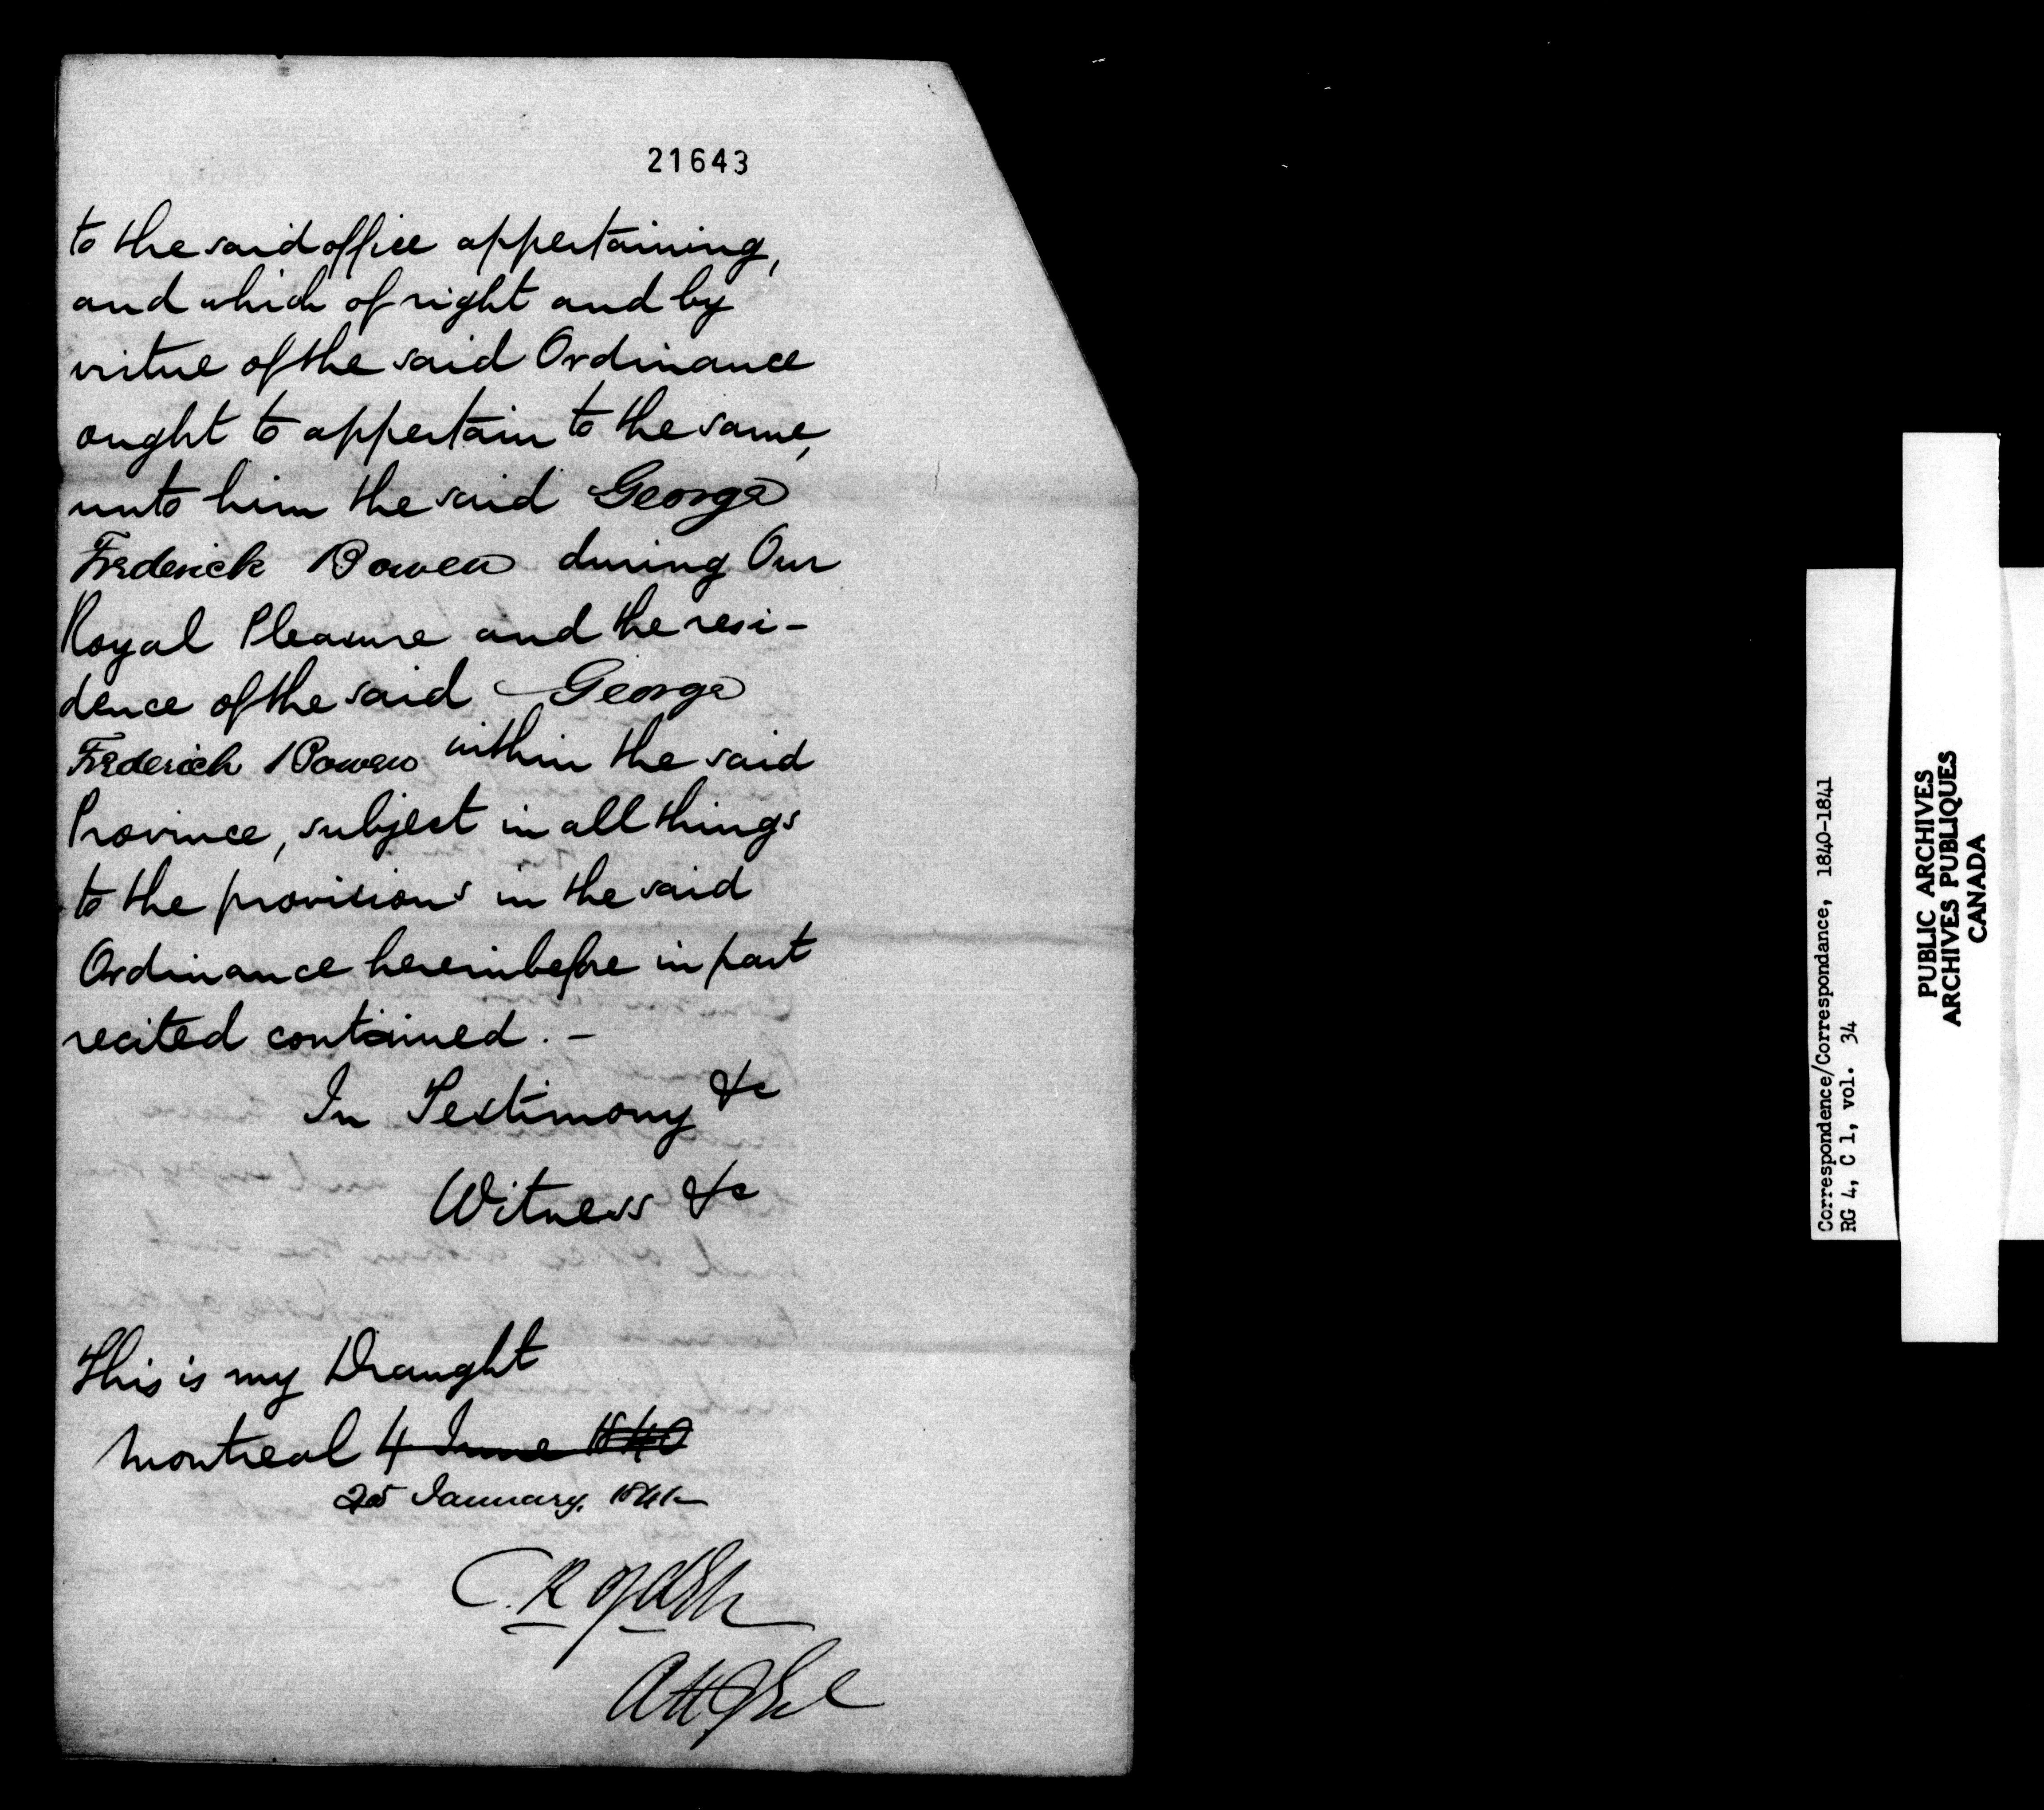 21643
to the said office appertaining,
and which of right and by
virtue of the said Ordinance
ought to appertain to the same,
unto him the said George
Frederick Bowen during Our
Royal Pleasure and the resi-
dence of the said George
Frederick Bowen within the said
Province, subject in all things
to the provisions in the said
Ordinance hereinbefore in part
recited contained. -
In Testimony &c
Witness &c
This is my Draught
Montreal 4 June 1840
25 January, 1841
C. R. Ogden
Att Gnl
Correspondence/Correspondance, 1840-1841
RG 4, C 1, vol. 34
PUBLIC ARCHIVES
ARCHIVES PUBLIQUES
CANADA